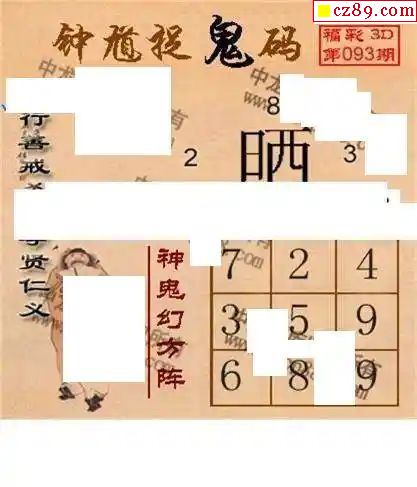 cz89.com
钟馗捉鬼码
福彩3D
第093期
8
2
晒
3
行善戒
贤仁义
神鬼幻方阵
7 2 4
3 5 9
6 8 9